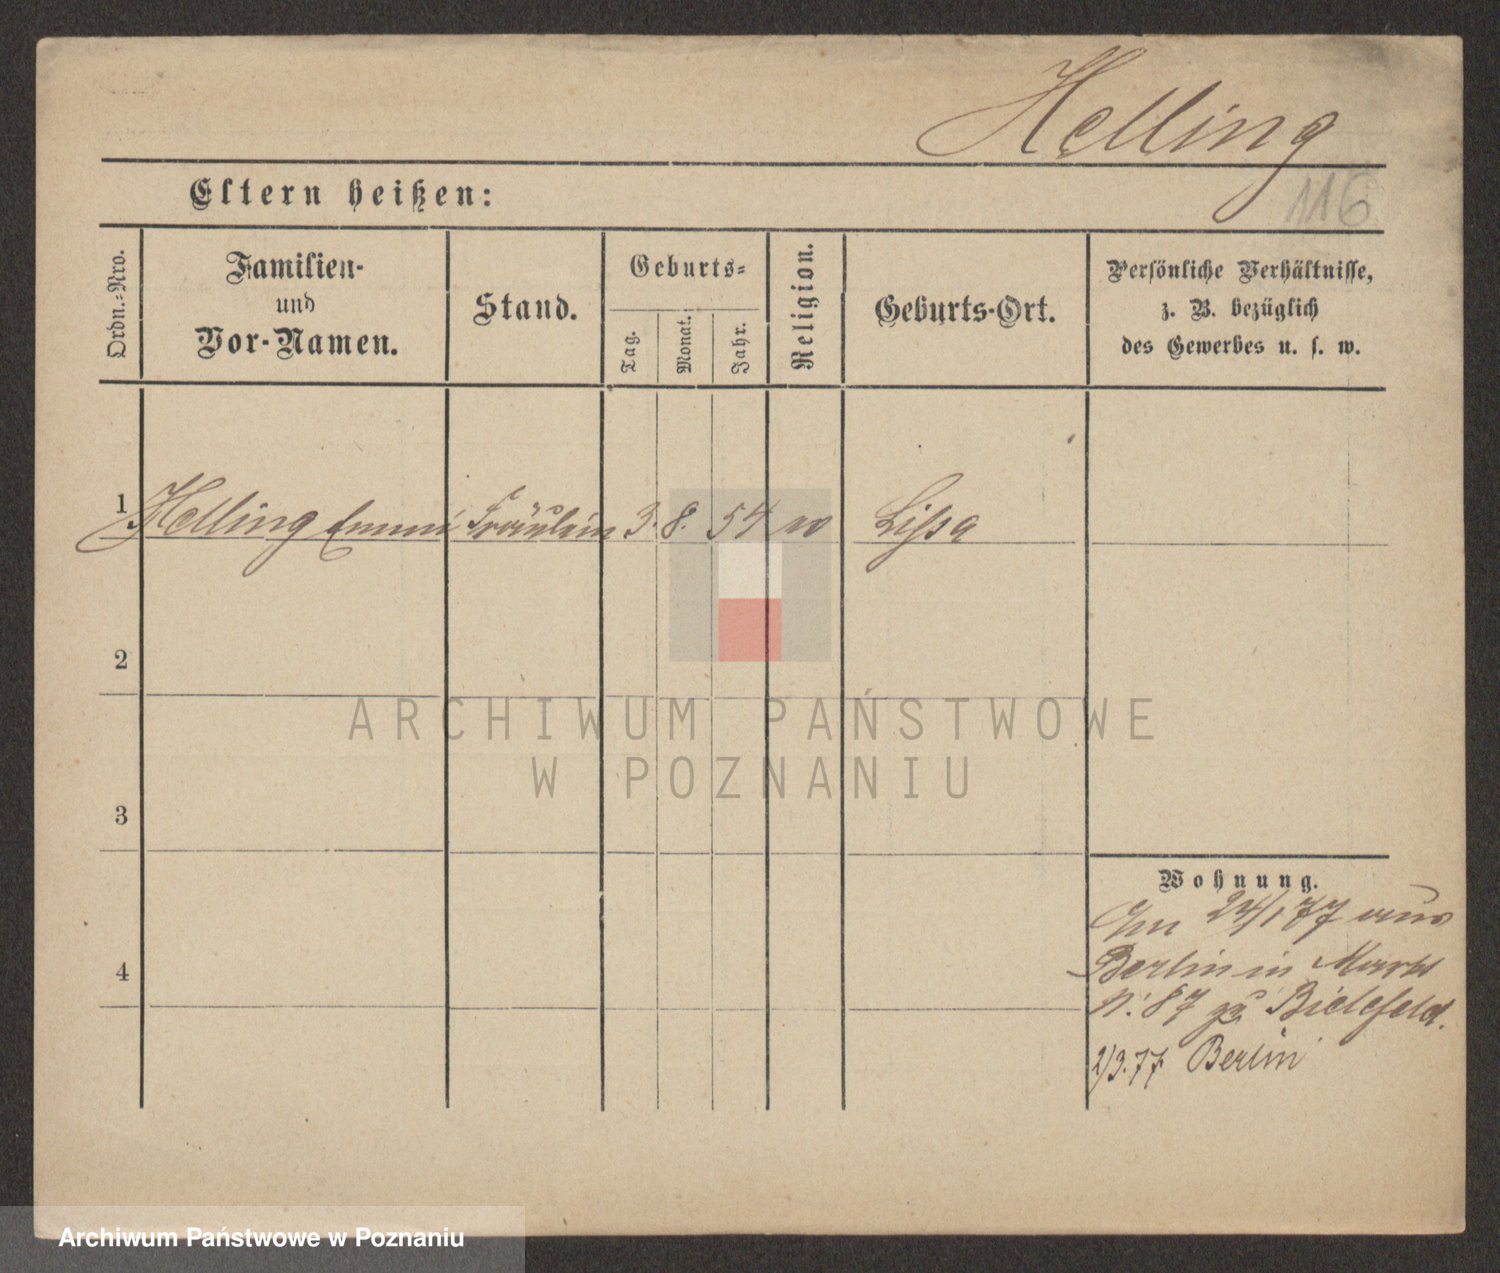 Helling
116
Eltern heißen:
Ordn.-Nro.
Familien-
und
Vor-Namen.
Stand.
Geburts-
Tag.
Monat.
Jahr.
Religion.
Geburts-Ort.
Persönliche Verhältnisse,
z. B. bezüglich
des Gewerbes u. s. w.
1 Helling Emmi Fräulein 3. 8. 54 Lissa
2
ARCHIWUM PAŃSTWOWE
W POZNANIU
3
Wohnung.
24/1 77 aus
Berlin in Markt
N. 87 zu Bielefeld.
4
2/3.77 Berlin
Archiwum Państwowe w Poznaniu